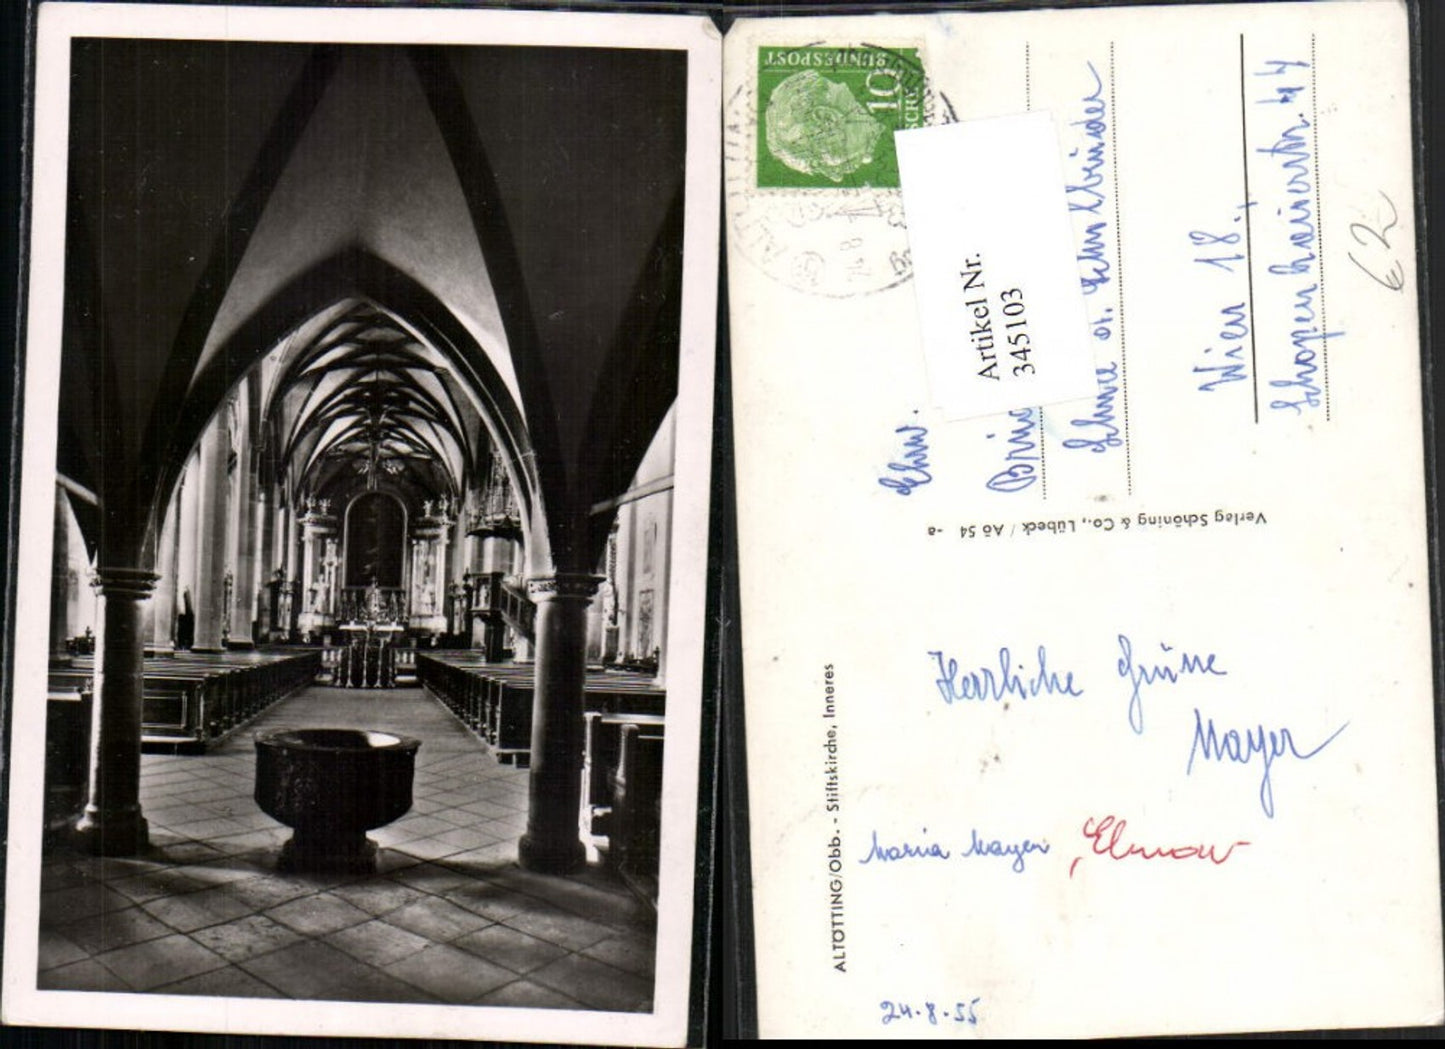 BUNDESPOST
10
Artikel Nr.
345103
Ehrw.
Wien 18.,
Schopenhauerstr. 44
62
Verlag Schöning & Co., Lübeck / Aö 54 -a
ALTÖTTING/Obb. - Stiftskirche, Inneres
Herzliche Grüsse
Mayer
Maria Mayer
24.8.55